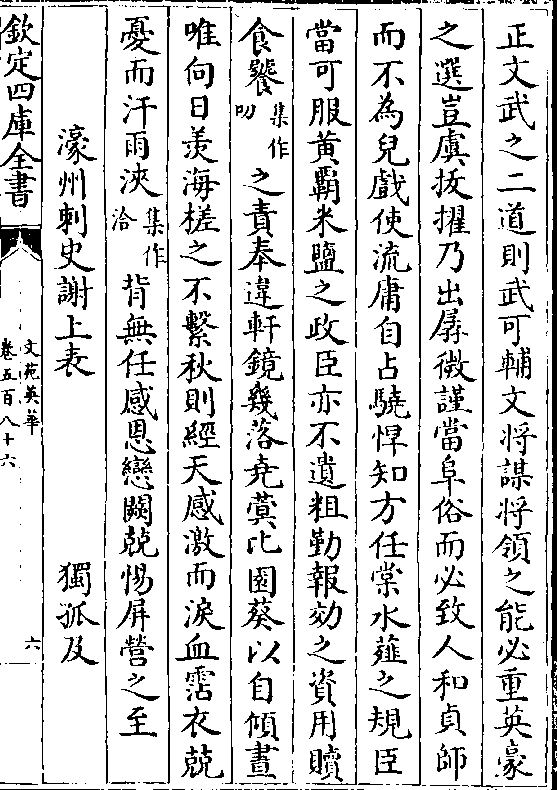 正文武之二道則武可輔文將謀將領之能必重英豪
之選豈虞拔擢乃出孱微謹當阜俗而必致人和貞師
而不為兒戲使流庸自占驍悍知方任棠水薤之規臣
當可服黄覇米鹽之政臣亦不遺粗勤報効之資用贖
食饕集作叨之責奉違軒鏡幾落堯蓂比園葵以自傾晝
唯向日羡海槎之不繫秋則經天感激而淚血霑衣兢
憂而汗雨浹集作洽背無任感恩戀闕兢惕屏營之至
濠州刺史謝上表 獨孤及
欽定四庫全書
文苑英華
卷五百八十六
六